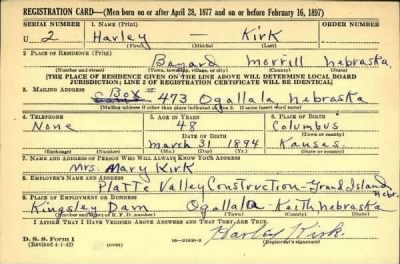 REGISTRATION CARD—(Men born on or after April 28, 1877 and on or before February 16, 1897)
SERIAL NUMBER 1. NAME (Print) ORDER NUMBER
U 2 Harley — Kirk
(First) (Middle) (Last)
2. PLACE OF RESIDENCE (Print)
Bayard Morrill Nebraska
(Number and street) (Town, township, village, or city) (County) (State)
[THE PLACE OF RESIDENCE GIVEN ON THE LINE ABOVE WILL DETERMINE LOCAL BOARD
JURISDICTION; LINE 2 OF REGISTRATION CERTIFICATE WILL BE IDENTICAL]
3. MAILING ADDRESS
Box 473 Ogallala Nebraska
[Mailing address if other than place indicated on line 2. If same insert word same]
4. TELEPHONE 5. AGE IN YEARS 6. PLACE OF BIRTH
None 48 Columbus
DATE OF BIRTH (Town or county)
March 31 1894 Kansas
(Exchange) (Number) (Mo.) (Day) (Yr.) (State or country)
7. NAME AND ADDRESS OF PERSON WHO WILL ALWAYS KNOW YOUR ADDRESS
Mrs. Mary Kirk
8. EMPLOYER'S NAME AND ADDRESS
Platte Valley Construction—Grand Island Nebr.
9. PLACE OF EMPLOYMENT OR BUSINESS
Kingsley Dam Ogallala – Keith Nebraska
(Number and street or R. F. D. number) (Town) (County) (State)
I AFFIRM THAT I HAVE VERIFIED ABOVE ANSWERS AND THAT THEY ARE TRUE.
D. S. S. Form 1
(Revised 4-1-42) Harley Kirk
(Registrant's signature)